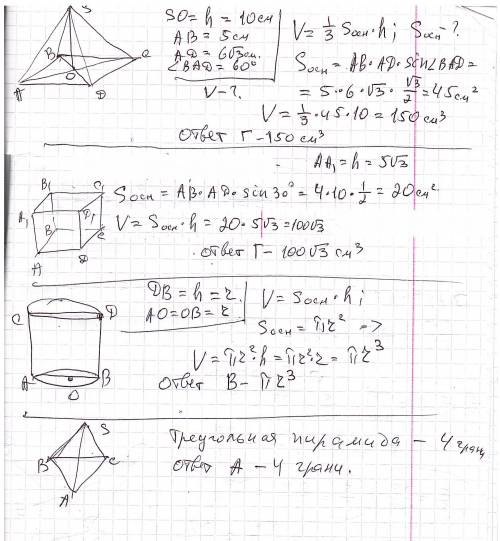 S
B
C
O
A
D
SO = h = 10 см
AB = 5 см
AD = 6√3 см.
∠BAD = 60°
V - ?
V = 1/3 Sосн · h; Sосн - ?
Sосн = AB · AD · sin∠BAD =
= 5 · 6 · √3 · √3/2 = 45 см²
V = 1/3 · 45 · 10 = 150 см³
Ответ Г - 150 см³
AA₁ = h = 5√3
B₁ C₁
A₁ D₁
B C
A D
Sосн = AB · AD · sin 30° = 4 · 10 · 1/2 = 20 см²
V = Sосн · h = 20 · 5√3 = 100√3
Ответ Г - 100√3 см³
C D
A B
O
DB = h = r.
AO = OB = r
V = Sосн · h;
Sосн = πr² =>
V = πr² · h = πr² · r = πr³
Ответ В - πr³
S
B C
A
Треугольная пирамида - 4 грани
Ответ А - 4 грани.